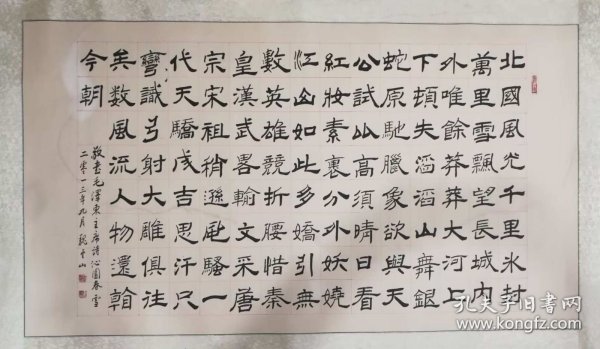 北國風光千里冰封
萬里雪飄望長城內
外唯餘莽莽大河上
下頓失滔滔山舞銀
蛇原馳臘象欲與天
公試比高須晴日看
紅妝素裹分外妖嬈
江山如此多嬌引無
數英雄競折腰惜秦
皇漢武畧輸文采唐
宗宋祖稍遜風騷一
代天驕成吉思汗只
彎識弓射大雕俱往
矣数風流人物還看
今朝
敬書毛澤東主席詩沁園春雪
二零一三年九月
孔夫子旧书网
www.kongfz.com